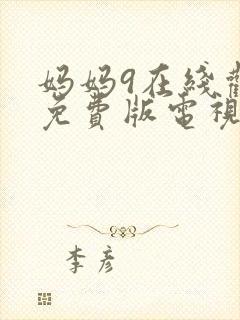 妈妈9在线觀
免費版電視
李彦